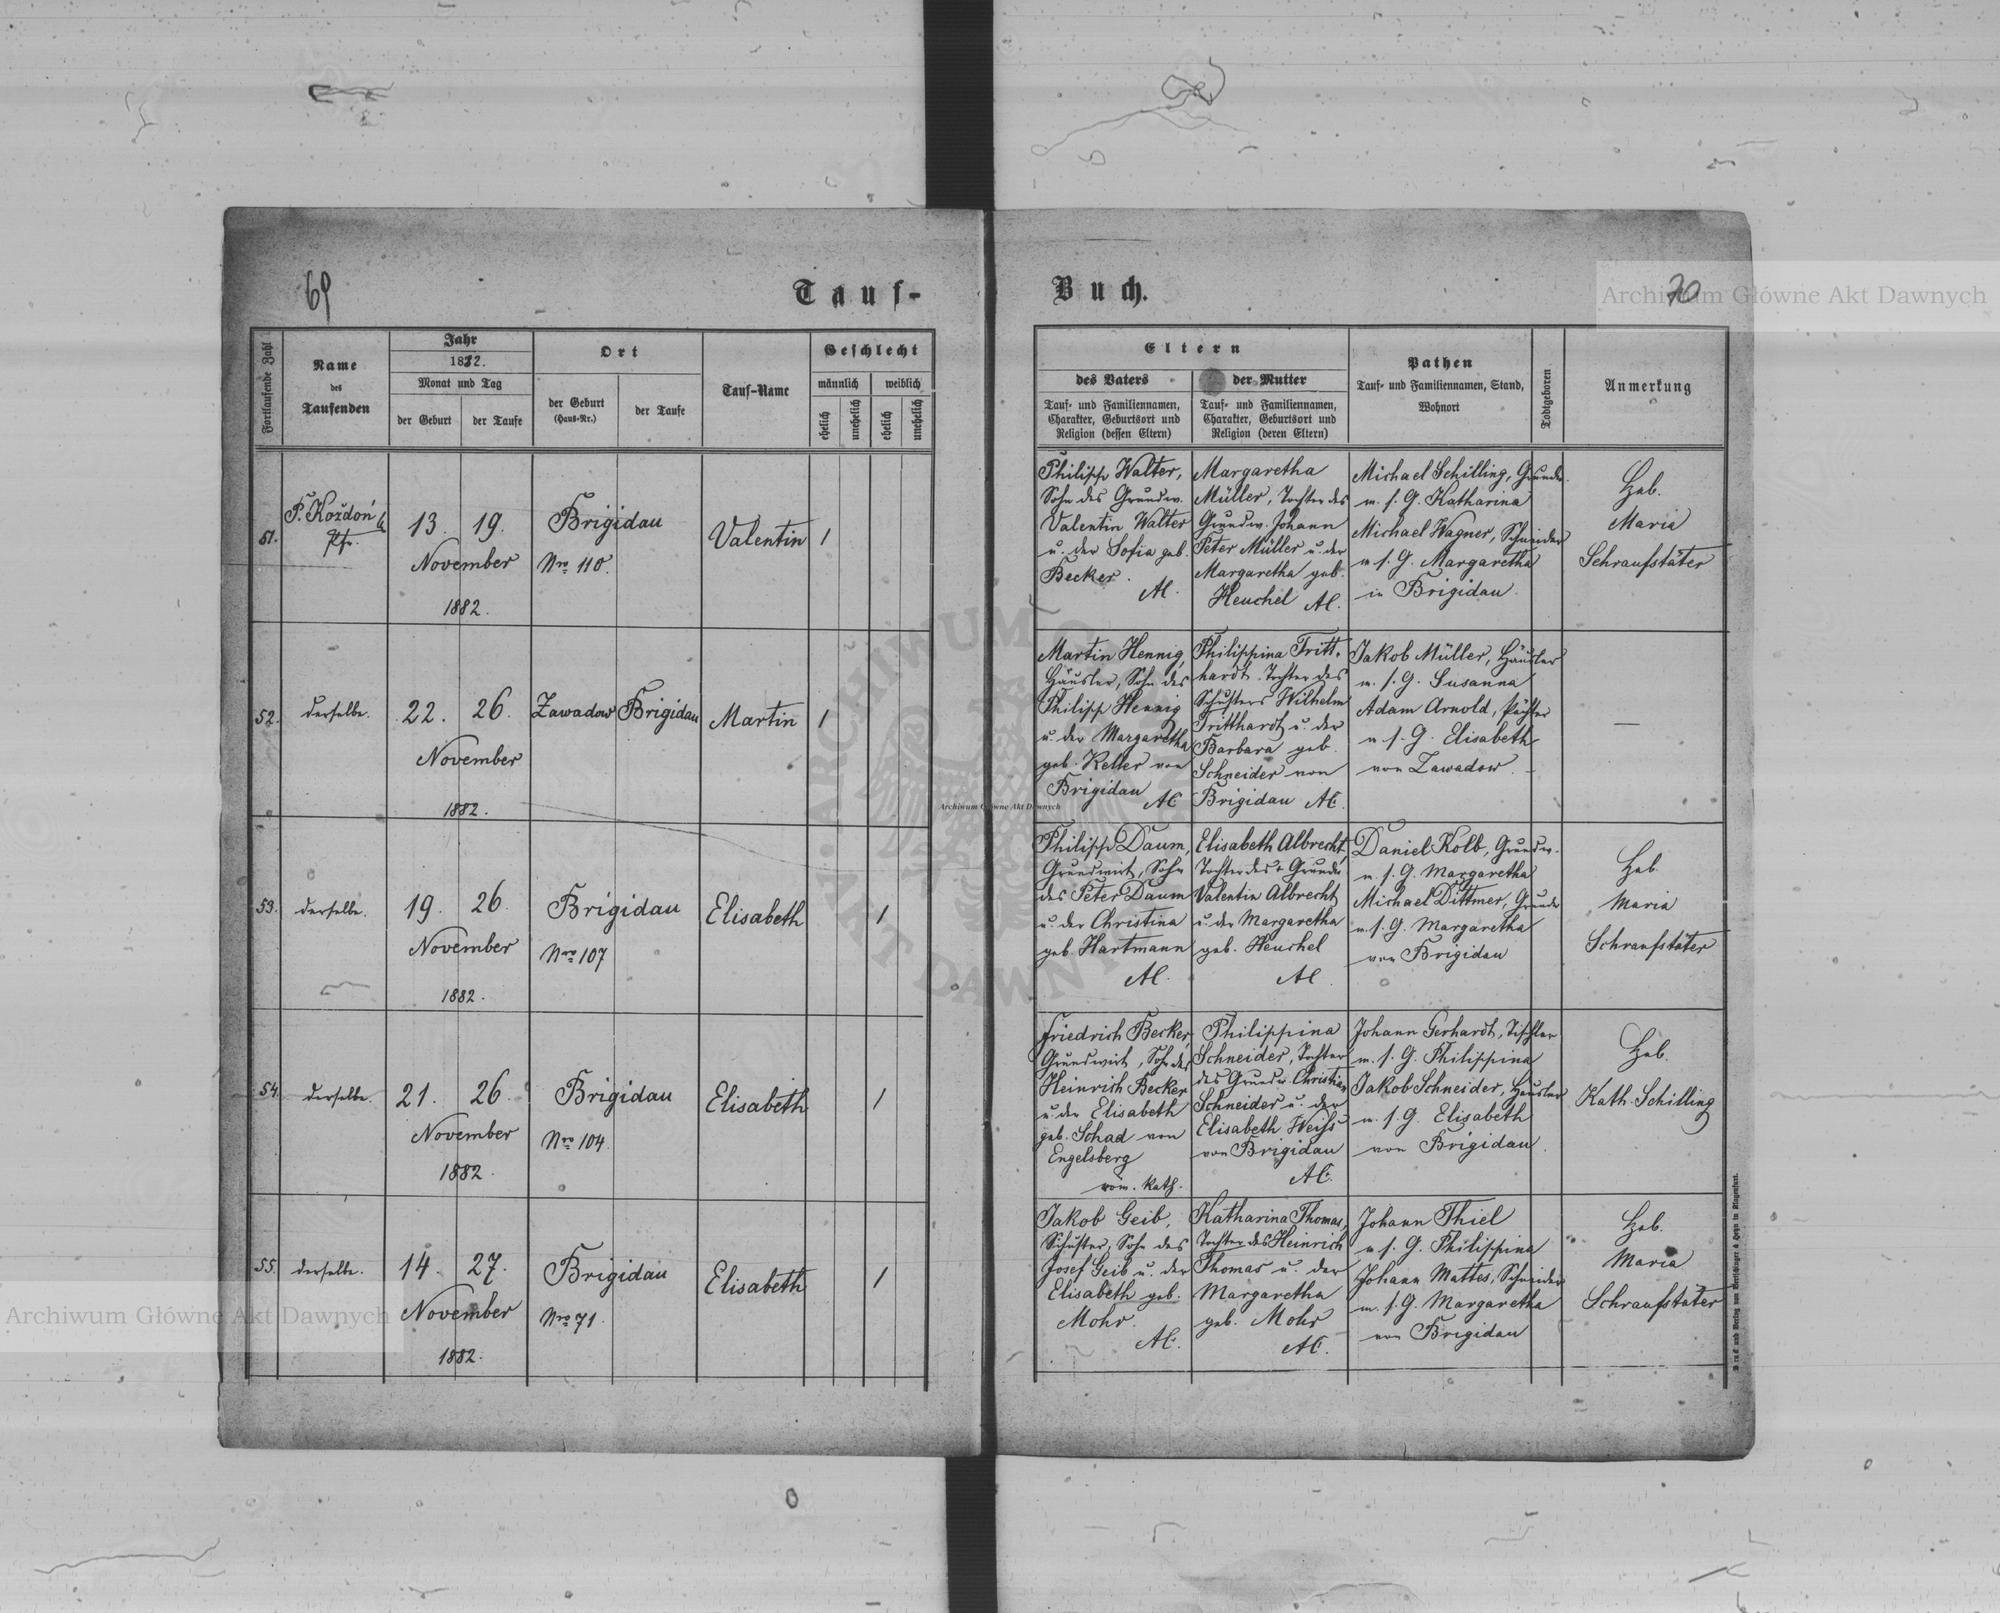 69
Tauf-
Buch.
70
Archiwum Główne Akt Dawnych
Fortlaufende Zahl
Name
des
Taufenden
Jahr
1882.
Monat und Tag
der Geburt
der Taufe
Ort
der Geburt
(Haus-Nr.)
der Taufe
Tauf-Name
Geschlecht
männlich
weiblich
ehelich
unehelich
ehelich
unehelich
Eltern
des Vaters
Tauf- und Familiennamen,
Charakter, Geburtsort und
Religion (dessen Eltern)
der Mutter
Tauf- und Familiennamen,
Charakter, Geburtsort und
Religion (deren Eltern)
Pathen
Tauf- und Familiennamen, Stand,
Wohnort
Todtgeboren
Anmerkung
51.
P. Koždoń
Pfr.
13.
19.
November
1882.
Brigidau
Nro 110.
Valentin
1
Philipp Walter,
Sohn des Grundw.
Valentin Walter
u. der Sofia geb.
Becker.
AC.
Margaretha
Müller, Tochter des
Grundw. Johann
Peter Müller u. der
Margaretha geb.
Heuchel AC.
Michael Schilling, Grundw.
m. s. G. Katharina
Michael Wagner, Schneider
m. s. G. Margaretha
in Brigidau.
Heb.
Maria
Schraufstäter
52.
derselbe.
22.
26.
November
1882.
Zawadow
Brigidau
Martin
1
Martin Hennig,
Häusler, Sohn des
Philipp Hennig
u. der Margaretha
geb. Keller von
Brigidau
AC
Philippina Tritt-
hardt. Tochter des
Schusters Wilhelm
Tritthardt u. der
Barbara geb.
Schneider von
Brigidau AC.
Jakob Müller, Häusler
m. s. G. Susanna
Adam Arnold, Pächter
m. s. G. Elisabeth
von Zawadow.
—
53.
derselbe.
19.
26.
November
1882.
Brigidau
Nro 107
Elisabeth
1
Philipp Daum,
Grundwirt, Sohn
des Peter Daum
u. der Christina
geb. Hartmann
AC.
Elisabeth Albrecht,
Tochter des + Grundw.
Valentin Albrecht
u. der Margaretha
geb. Heuchel
AC.
Daniel Kolb, Grundw.
m. s. G. Margaretha
Michael Dittmer, Grundw
m. s. G. Margaretha
von Brigidau
Heb.
Maria
Schraufstäter
54.
derselbe.
21.
26.
November
1882.
Brigidau
Nro 104.
Elisabeth
1
Friedrich Becker,
Grundwirt, Sohn des
Heinrich Becker
u. der Elisabeth
geb. Schad von
Engelsberg
röm. kath.
Philippina
Schneider, Tochter
des Grundw. Christian
Schneider u. der
Elisabeth Weiss
von Brigidau
AC.
Johann Gerhardt, Tischler
m. s. G. Philippina
Jakob Schneider, Häusler
m. s. G. Elisabeth
von Brigidau.
Heb.
Kath. Schilling
55.
derselbe.
14.
27.
November
1882.
Brigidau
Nro 71.
Elisabeth
1
Jakob Geib,
Schuster, Sohn des
Josef Geib u. der
Elisabeth geb.
Mohr.
AC.
Katharina Thomas,
Tochter des Heinrich
Thomas u. der
Margaretha
geb. Mohr
AC.
Johann Thiel
m. s. G. Philippina
Johann Mattes, Schneider
m. s. G. Margaretha
von Brigidau
Heb.
Maria
Schraufstäter
Archiwum Główne Akt Dawnych
Archiwum Główne Akt Dawnych